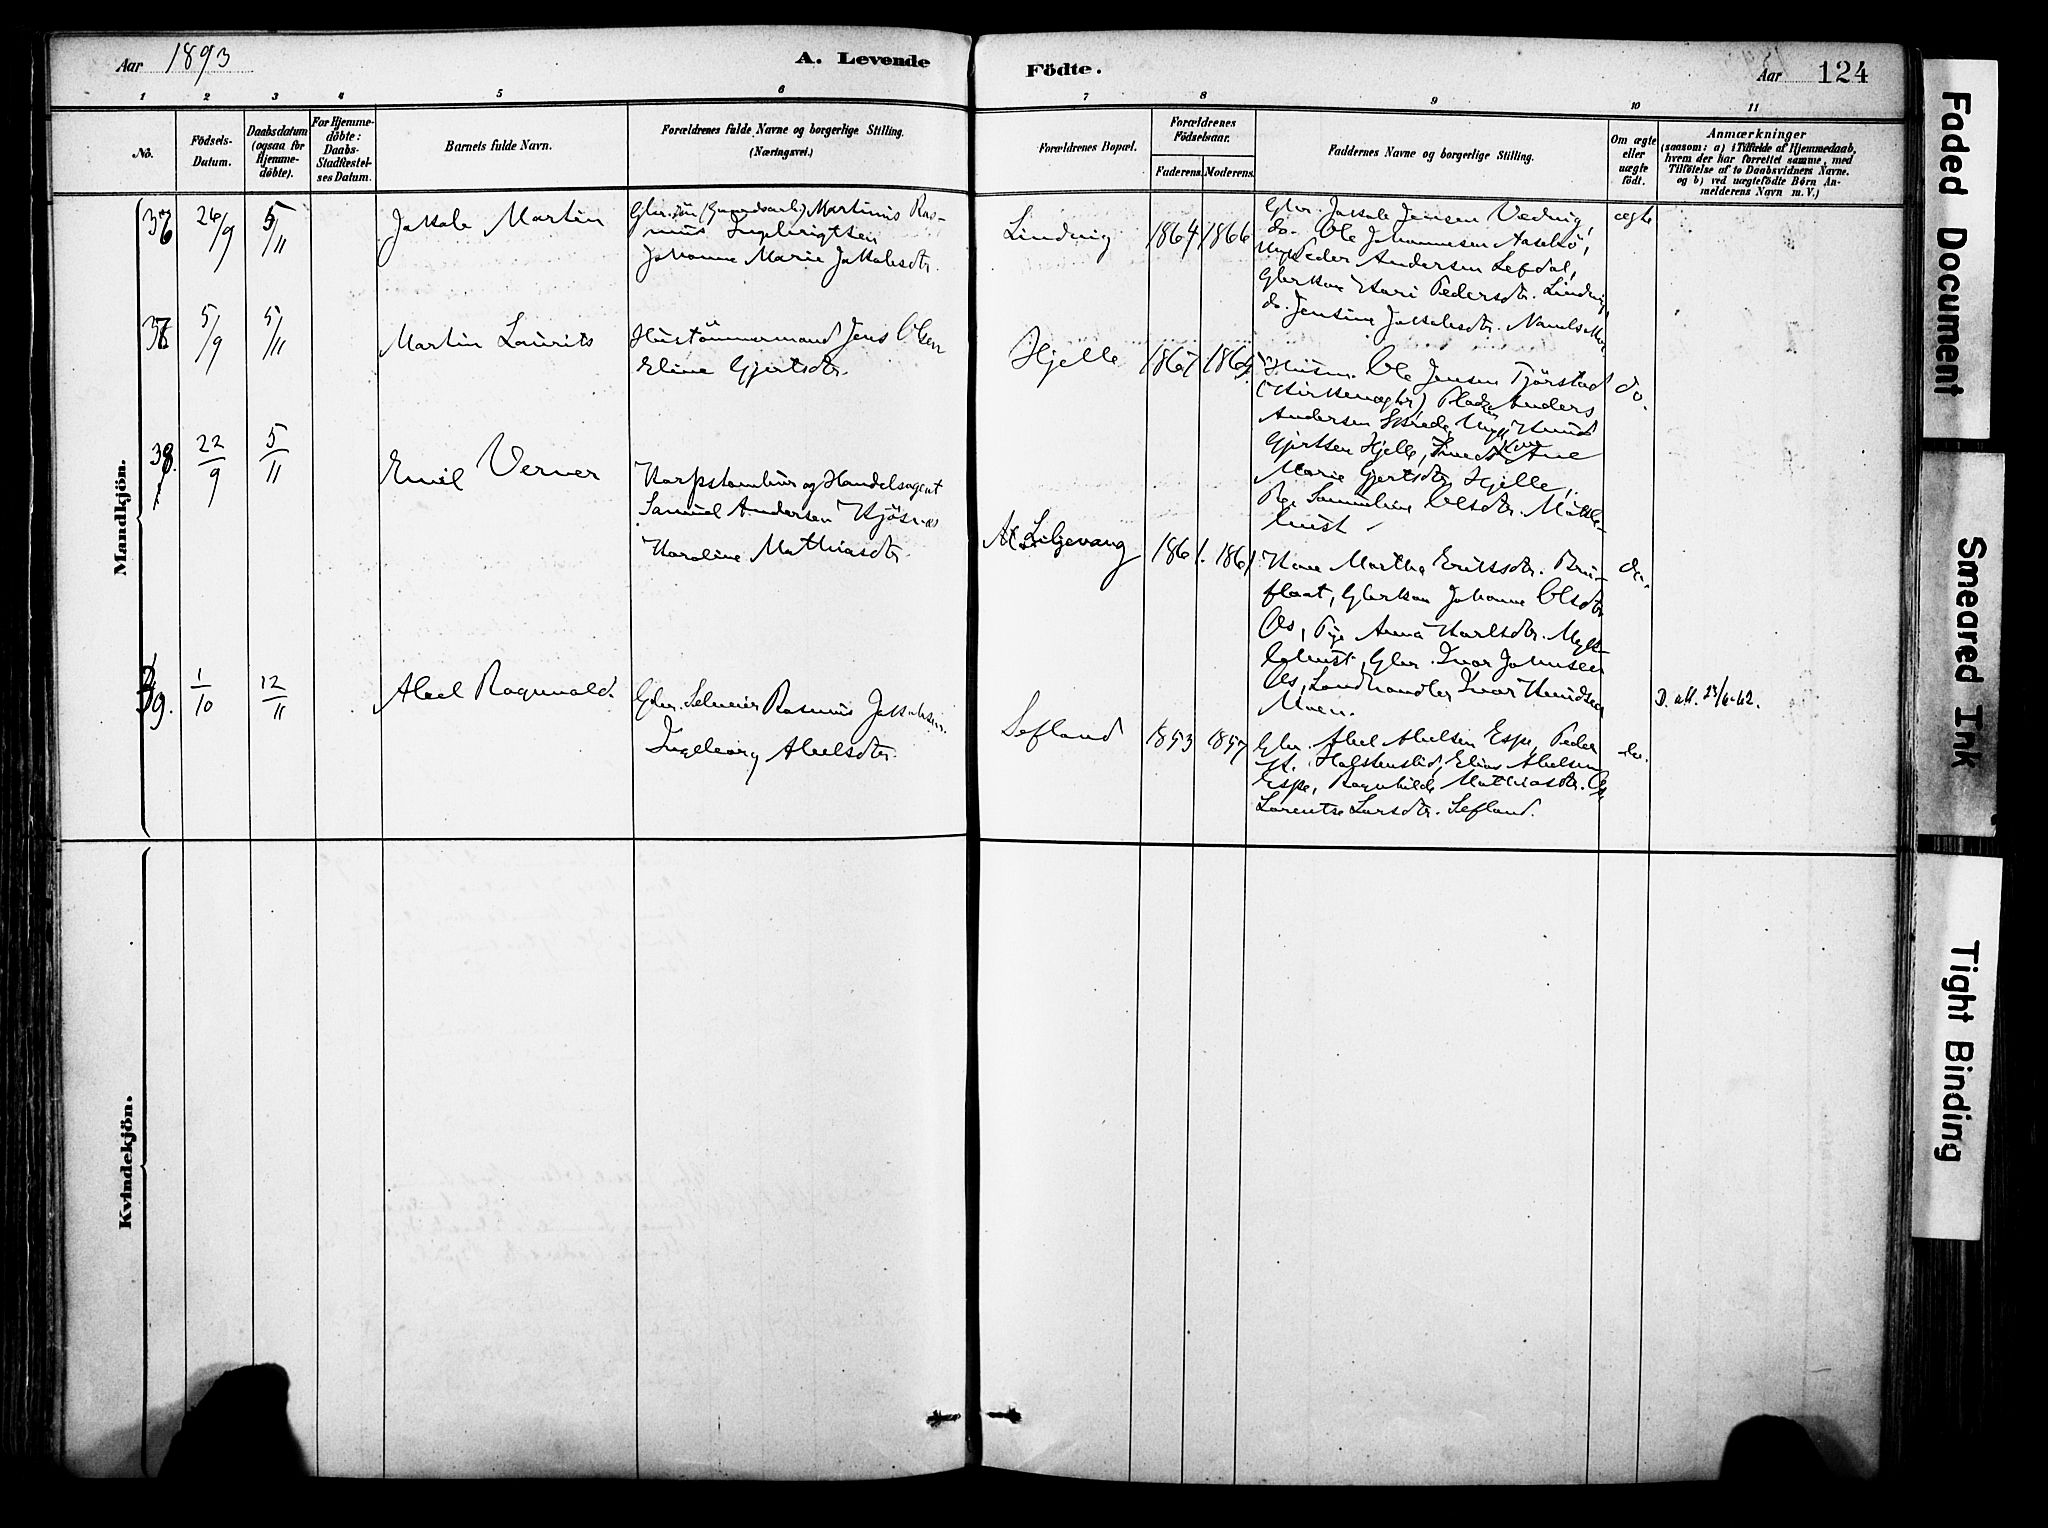 Aar 1893
A. Levende
Födte.
Aar 124
1 2 3 4 5 6 7 8 9 10 11
No.
Födsels-
Datum.
Daabsdatum
(ogsaa for
Hjemme-
döbte).
For Hjemme-
döbte:
Daabs-
Stadfæstel-
ses Datum.
Barnets fulde Navn.
Forældrenes fulde Navne og borgerlige Stilling.
(Næringsvei.)
Forældrenes Bopæl.
Forældrenes
Födselsaar.
Faderens. Moderens.
Faddernes Navne og borgerlige Stilling.
Om ægte
eller
uægte
födt.
Anmærkninger
(saasom: a) i Tilfælde af Hjemmedaab,
hvem der har forrettet samme, med
Tilföielse af to Daabsvidners Navne.
og b) ved uægtefödte Börn An-
melderens Navn m. V.)
Mandkjön.
36 26/9 5/11
Jakob Martin
Martinus Ras-
mus Ingebrigtsen
Johanne Marie Jakobsdtr.
Lindvig
1864 1866
Gbr. Jakob Jensen Vedvig,
do. Ole Johannesen Aaselsö,
Ungk. Peder Andersen Lefdal,
Gbrkone Kari Pedersdtr. Lindvig
do. Jensine Jakobsdtr.
ægte
37 5/9 5/11
Martin Laurits
Hustömmermand Jens Olsen
Eline Gjertsdtr.
Hjelle
1867
Husm. Ole Jensen Tjörstad
Anders
Andersen Knud
Gjertsen Hjelle, Ane
Marie Gjertsdtr. Hjelle,
Pige Olsdtr. Mökle-
bust
do.
38. 22/9 5/11
Emil Verner
Korpstambur og Handelsagent
Samuel Andersen Kjösnes
Karoline Mathiasdtr.
Liljevang
1861. 1861
Kone Marthe Eriksdtr.
Gbrkone Johanne Olsdtr.
Os, Pige Anna Karlsdtr. Mykle-
bust, Gbr. Ivar Johnsen
Os, Landhandler Ivar Knudsen
Moen.
do.
39. 1/10 12/11
Abel Ragnvald.
Gbr. Selveier Rasmus Jakobsen
Ingeborg Abelsdtr.
Lefland
1853 1857
Gbr. Abel Abelsen Espe, Peder
Elias Abelsen
Espe, Ragnhilde Mathiasdtr. Os,
Lorentse Larsdtr. Lefland.
do.
D. att. 23/6-62.
Kvindekjön.
Faded Document
Smeared Ink
Tight Binding